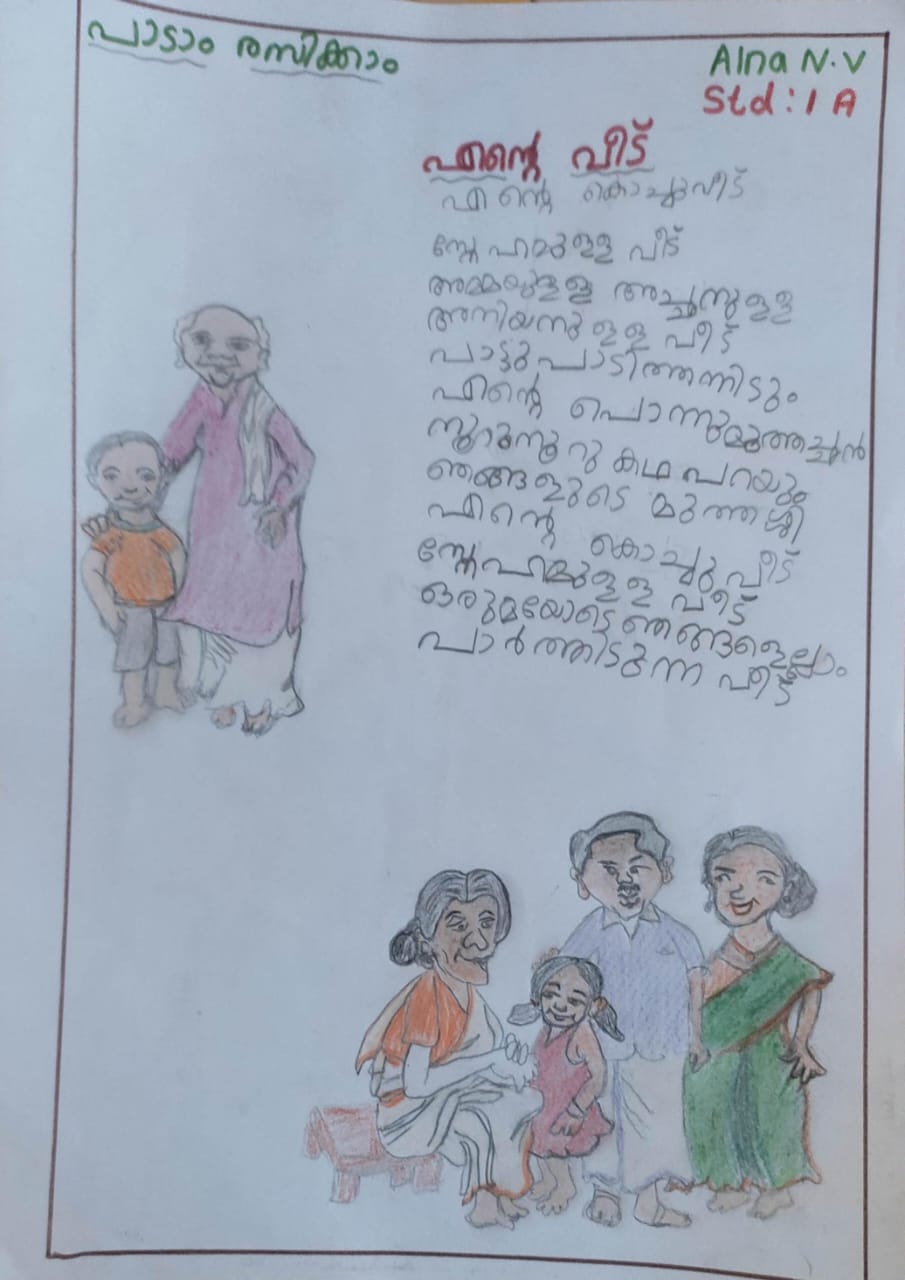 പാടാം രസിക്കാം
Alna N.V
Std : 1 A
എന്റെ വീട്
എന്റെ കൊച്ചുവീട്
സ്നേഹമുള്ള വീട്
അമ്മയുള്ള അച്ഛനുള്ള
അനിയനുള്ള വീട്
പാട്ടു പാടിത്തന്നിടും
എന്റെ പൊന്നുമുത്തച്ഛൻ
നൂറുനൂറു കഥ പറയും
ഞങ്ങളുടെ മുത്തശ്ശി
എന്റെ കൊച്ചു വീട്
സ്നേഹമുള്ള വീട്
ഒരുമയോടെ ഞങ്ങളെല്ലാം
പാർത്തിടുന്ന വീട്